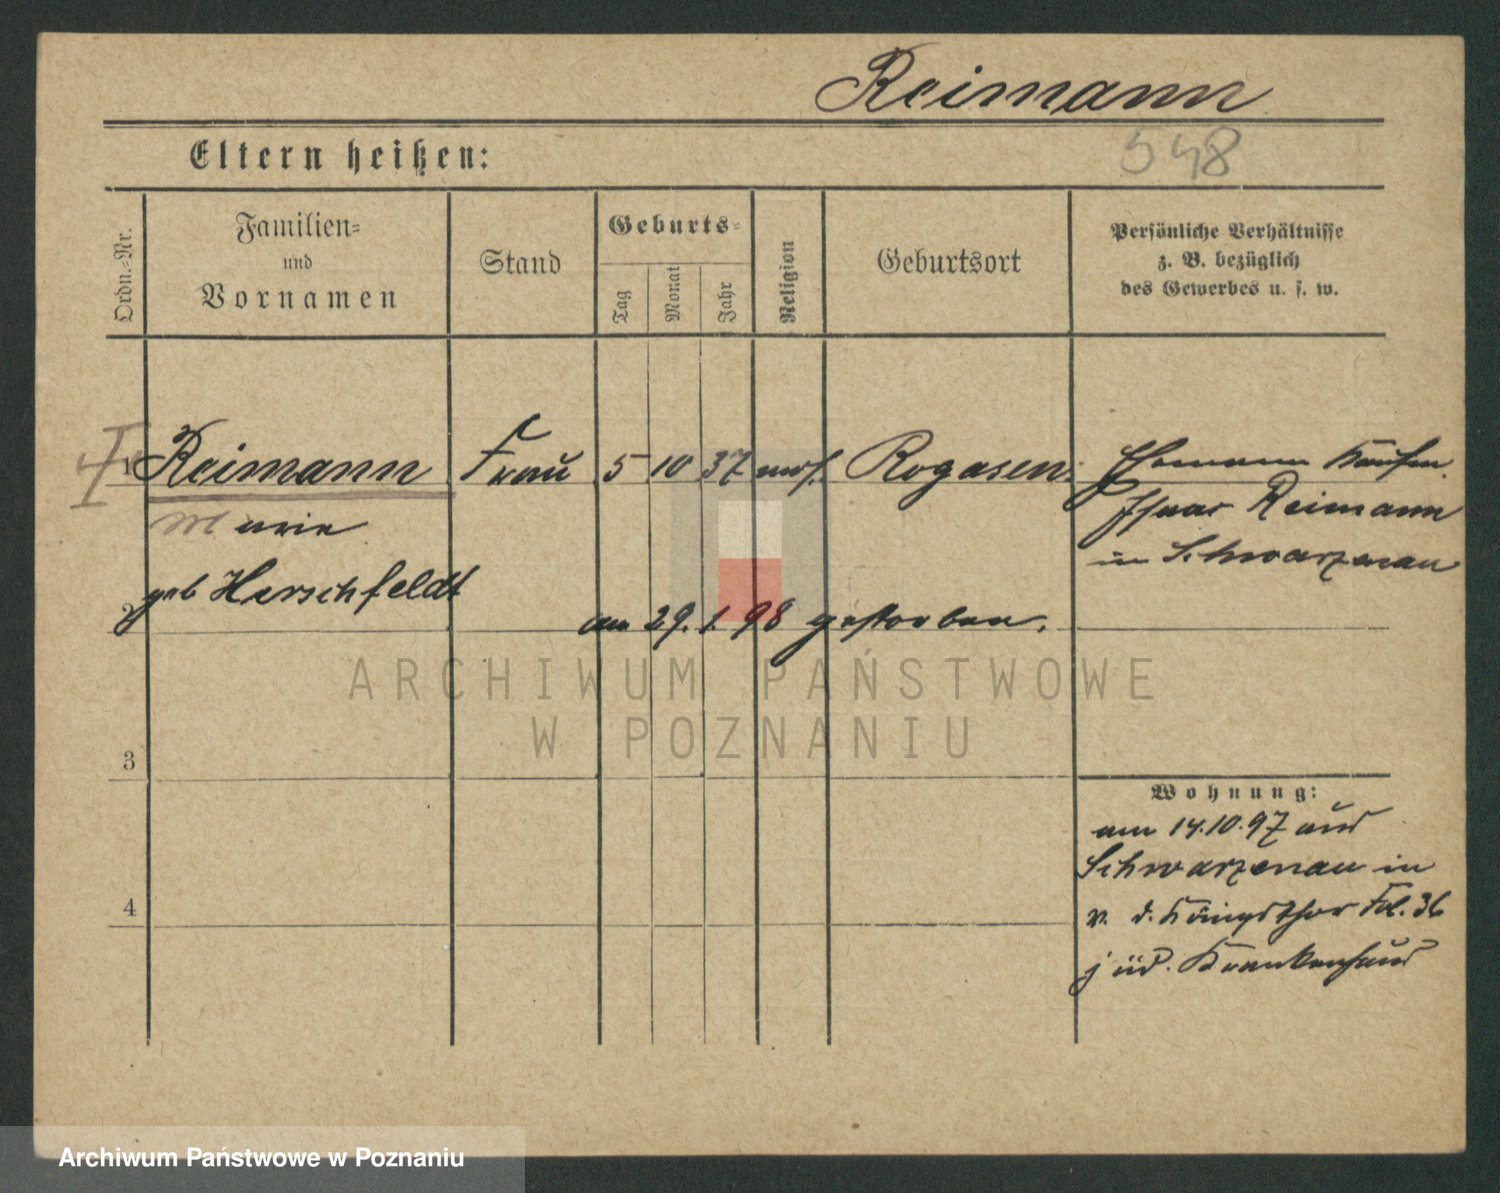 Reimann
548
Eltern heißen:
Ordn.-Nr.
Familien-
und
Vornamen
Stand
Geburts-
Tag
Monat
Jahr
Religion
Geburtsort
Persönliche Verhältnisse
z. B. bezüglich
des Gewerbes u. s. w.
1 Reimann Frau 5 10 37 mos. Rogasen Ehemann Kaufm.
Marie
Isaac Reimann
in Schwarzenau
geb Herschfeldt
2
am 29. 1. 98 gestorben.
ARCHIWUM PAŃSTWOWE
W POZNANIU
3
Wohnung:
am 14.10.97 aus
Schwarzenau in
v. d. Königsthor Fol. 36
jüd. Krankenhaus
4
Archiwum Państwowe w Poznaniu